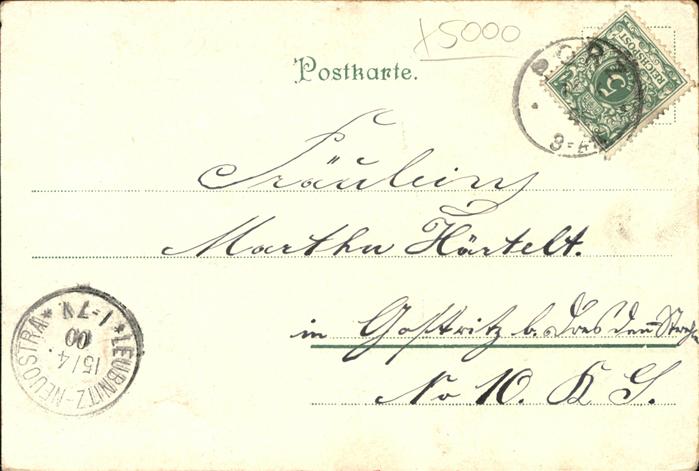 x5000
Postkarte.
REICHSPOST
5
Fräulein
Martha Härtelt.
in Gostritz b. Dresden-Strehlen
No 10. K S.
LEUBNITZ-NEUOSTRA
15/4.
00
1-7N